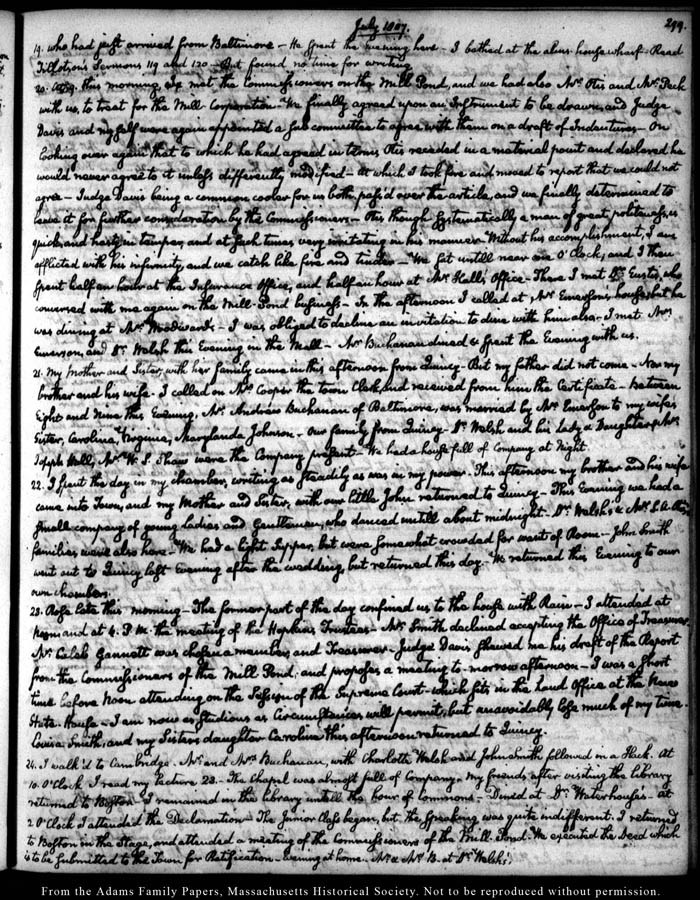 July 1807.
299.
19. who had just arrived from Baltimore – He spent the evening here – I bathed at the alms-house wharf. Read
Tillotson's Sermons 119 and 120 – But found no time for writing.
20. this morning, I met the Commissioners on the Mill Pond, and we had also Mr. Otis and Mr. Peck
with us, to treat for the Mill Corporation – We finally agreed upon an Instrument to be drawn, and Judge
Davis and myself were again appointed a sub committee to agree with them on a draft of Indentures – On
looking over again that to which he had agreed in terms Otis receded in a material point and declared he
would never agree to it unless differently modified – At which I took fire and moved to report that we could not
agree – Judge Davis being a common cooler for us both, pass'd over the article, and we finally determined to
leave it for further consideration by the Commissioners – Otis though systematically a man of great politeness, is
quick and hasty in temper, and at such times very irritating in his manner. Without his accomplishment, I am
afflicted with his infirmity, and we catch like fire and tinder – We sat untill near one O'Clock, and I then
spent half an hour at the Insurance Office, and half an hour at Mr. Hall's Office – There I met Dr. Eustis, who
conversed with me again on the Mill-Pond business – In the afternoon I called at Mr. Emerson's house, but he
was dining at Mr. Woodward's – I was obliged to decline an invitation to dine with him also – I met Mr.
Emerson, and Dr. Welsh this Evening in the Mall – Mr. Buchanan dined & spent the Evening with us.
21. My Mother and Sister, with her family came in this afternoon from Quincy – But my father did not come – Nor my
brother and his wife – I called on Mr. Cooper the town Clerk, and received from him the Certificate – Between
Eight and Nine this Evening, Mr. Andrew Buchanan of Baltimore, was married by Mr. Emerson to my wife's
Sister, Carolina, Virginia, Marylanda Johnson – Our family from Quincy – Dr. Welsh and his Lady & Daughter, Mr.
Joseph Hall, Mr. W. S. Shaw were the Company present – We had a house full of Company at Night.
22. I spent the day in my chamber, writing as steadily as was in my power. This afternoon my brother and his wife
came into Town, and my Mother and Sister, with our little John returned to Quincy – This Evening we had a
small company of young Ladies and Gentlemen, who danced untill about midnight. Dr. Welsh's & Mr.
families were also here – We had a light Supper, but were somewhat crowded for want of Room – John Smith
went out to Quincy last Evening after the wedding, but returned this day – We returned this Evening to our
own chambers.
23. Rose late this morning – The former part of the day confined us to the house with Rain – I attended at
Noon and at 4. P.M. the meeting of the Hopkins Trustees – Mr. Smith declined accepting the Office of Treasurer.
Mr. Caleb Gannett was chosen a member, and Treasurer – Judge Davis shewed me his draft of the Report
from the Commissioners of the Mill Pond, and proposes a meeting to-morrow afternoon – I was a short
time before Noon attending on the Session of the Supreme Court – which sits in the Land Office at the New
State-House – I am now as studious as Circumstances will permit, but unavoidably lose much of my time.
Louisa Smith, and my Sister's daughter Caroline this afternoon returned to Quincy.
24. I walk'd to Cambridge. Mr. and Mrs. Buchanan, with Charlotte Welsh and John Smith followed in a Hack. At
10. O'Clock I read my Lecture 23. – The Chapel was almost full of Company – My friends after visiting the Library
returned to Boston – I remained in the library untill the hour of Commons – Dined at Dr. Waterhouse's – At
2 O'Clock I attended the Declamation – The Junior Class began, but the speaking was quite indifferent. I returned
to Boston in the Stage, and attended a meeting of the Commissioners of the Mill-Pond. We executed the Deed which
is to be submitted to the Town for Ratification – Evening at home. Mr. & Mrs. B. at Dr. Welsh's.
From the Adams Family Papers, Massachusetts Historical Society. Not to be reproduced without permission.